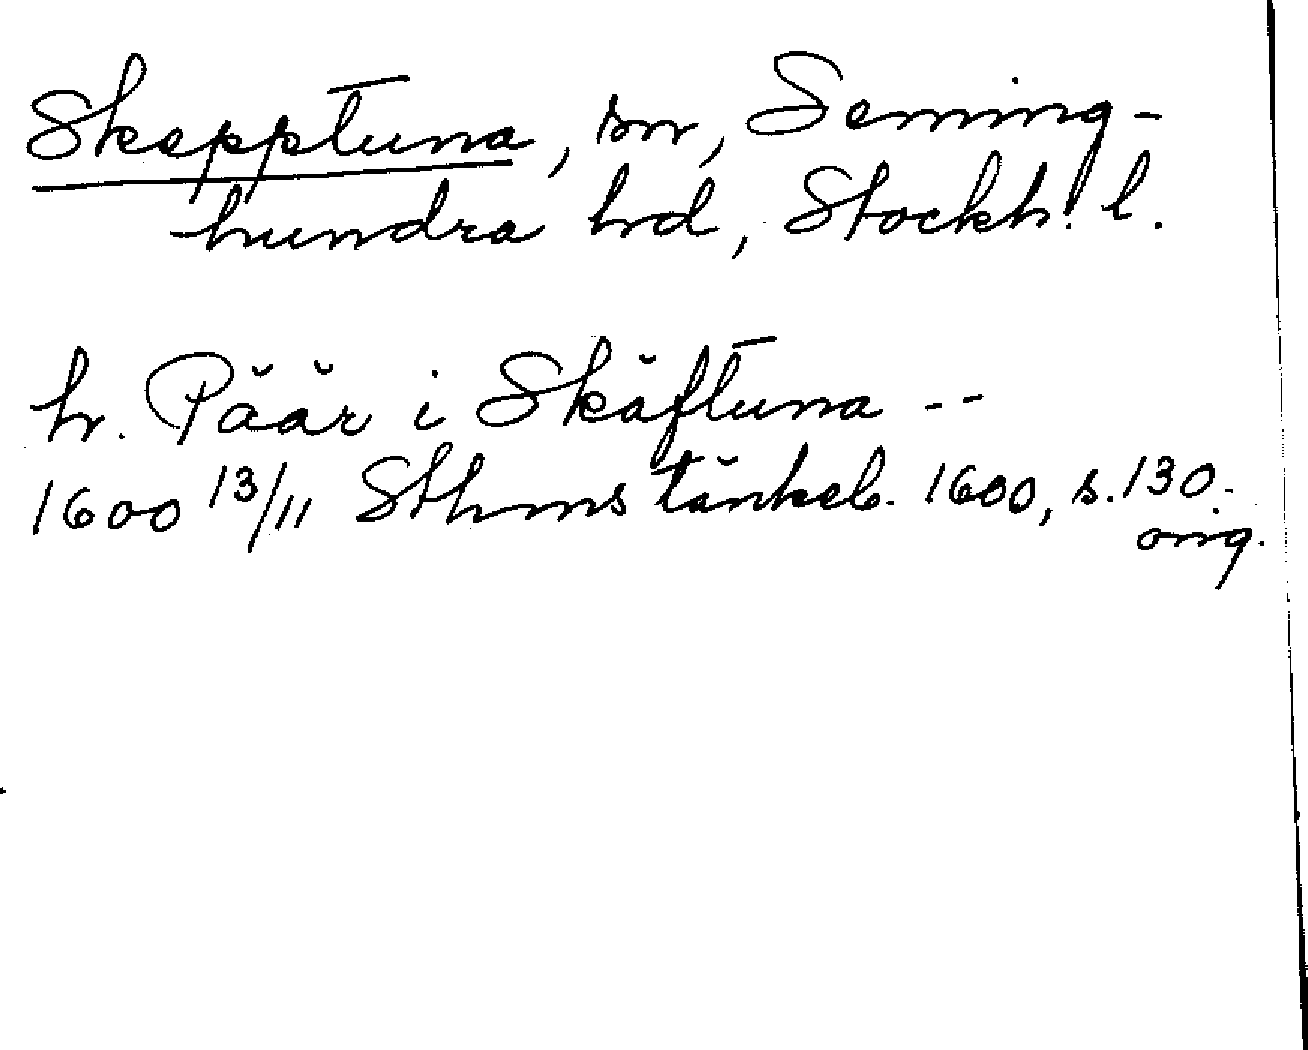 Skepptuna, sn, Seming-
hundra hd, Stockh. l.
h. Päär i Skäftuna --
1600 13/11 Sthms tänkeb. 1600, s. 130.
orig.